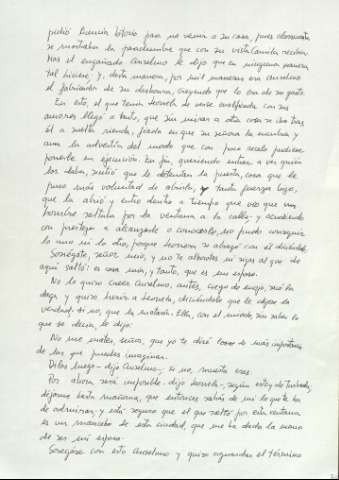 pidió licencia Lotario para no venir a su casa, pues claramente
se mostraba la pesadumbre que con su vista Camila recibía;
mas el engañado Anselmo le dijo que en ninguna manera
tal hiciese; y, desta manera, por mil maneras era Anselmo
el fabricador de su deshonra, creyendo que lo era de su gusto.
En esto, el que tenía Leonela de verse cualificada con sus
amores llegó a tanto, que sin mirar a otra cosa se iba tras
él a suelta rienda, fiada en que su señora la encubría, y
aun la advertía del modo que con poco recelo pudiese
ponerle en ejecución. En fin, queriendo entrar a ver quién
los daba, sintió que le detenían la puerta, cosa que le
puso más voluntad de abrirla, y tanta fuerza hizo,
que la abrió y entró dentro a tiempo que vio que un
hombre saltaba por la ventana a la calle; y acudiendo
con presteza a alcanzarle o conocerle, no pudo conseguir
lo uno ni lo otro, porque Leonela se abrazó con él, diciéndole
Sosiégate, señor mío, y no te alborotes ni sigas al que de
aquí saltó: es cosa mía, y tanto, que es mi esposo.
No lo quiso creer Anselmo, antes, ciego de enojo, sacó la
daga y quiso herir a Leonela, diciéndole que le dijese la
verdad; si no, que la mataría. Ella, con el miedo, sin saber lo
que se decía, le dijo:
No me mates, señor, que yo te diré cosas de más importancia
de las que puedes imaginar.
Dilas luego - dijo Anselmo-, si no, muerta eres.
Por ahora será imposible - dijo Leonela-, según estoy de turbada;
déjame hasta mañana, que entonces sabrás de mí lo que te ha
de admirar; y está seguro que el que saltó por esta ventana
es un mancebo de esta ciudad, que me ha dado la mano
de ser mi esposo.
Sosegóse con esto Anselmo y quiso aguardar el término